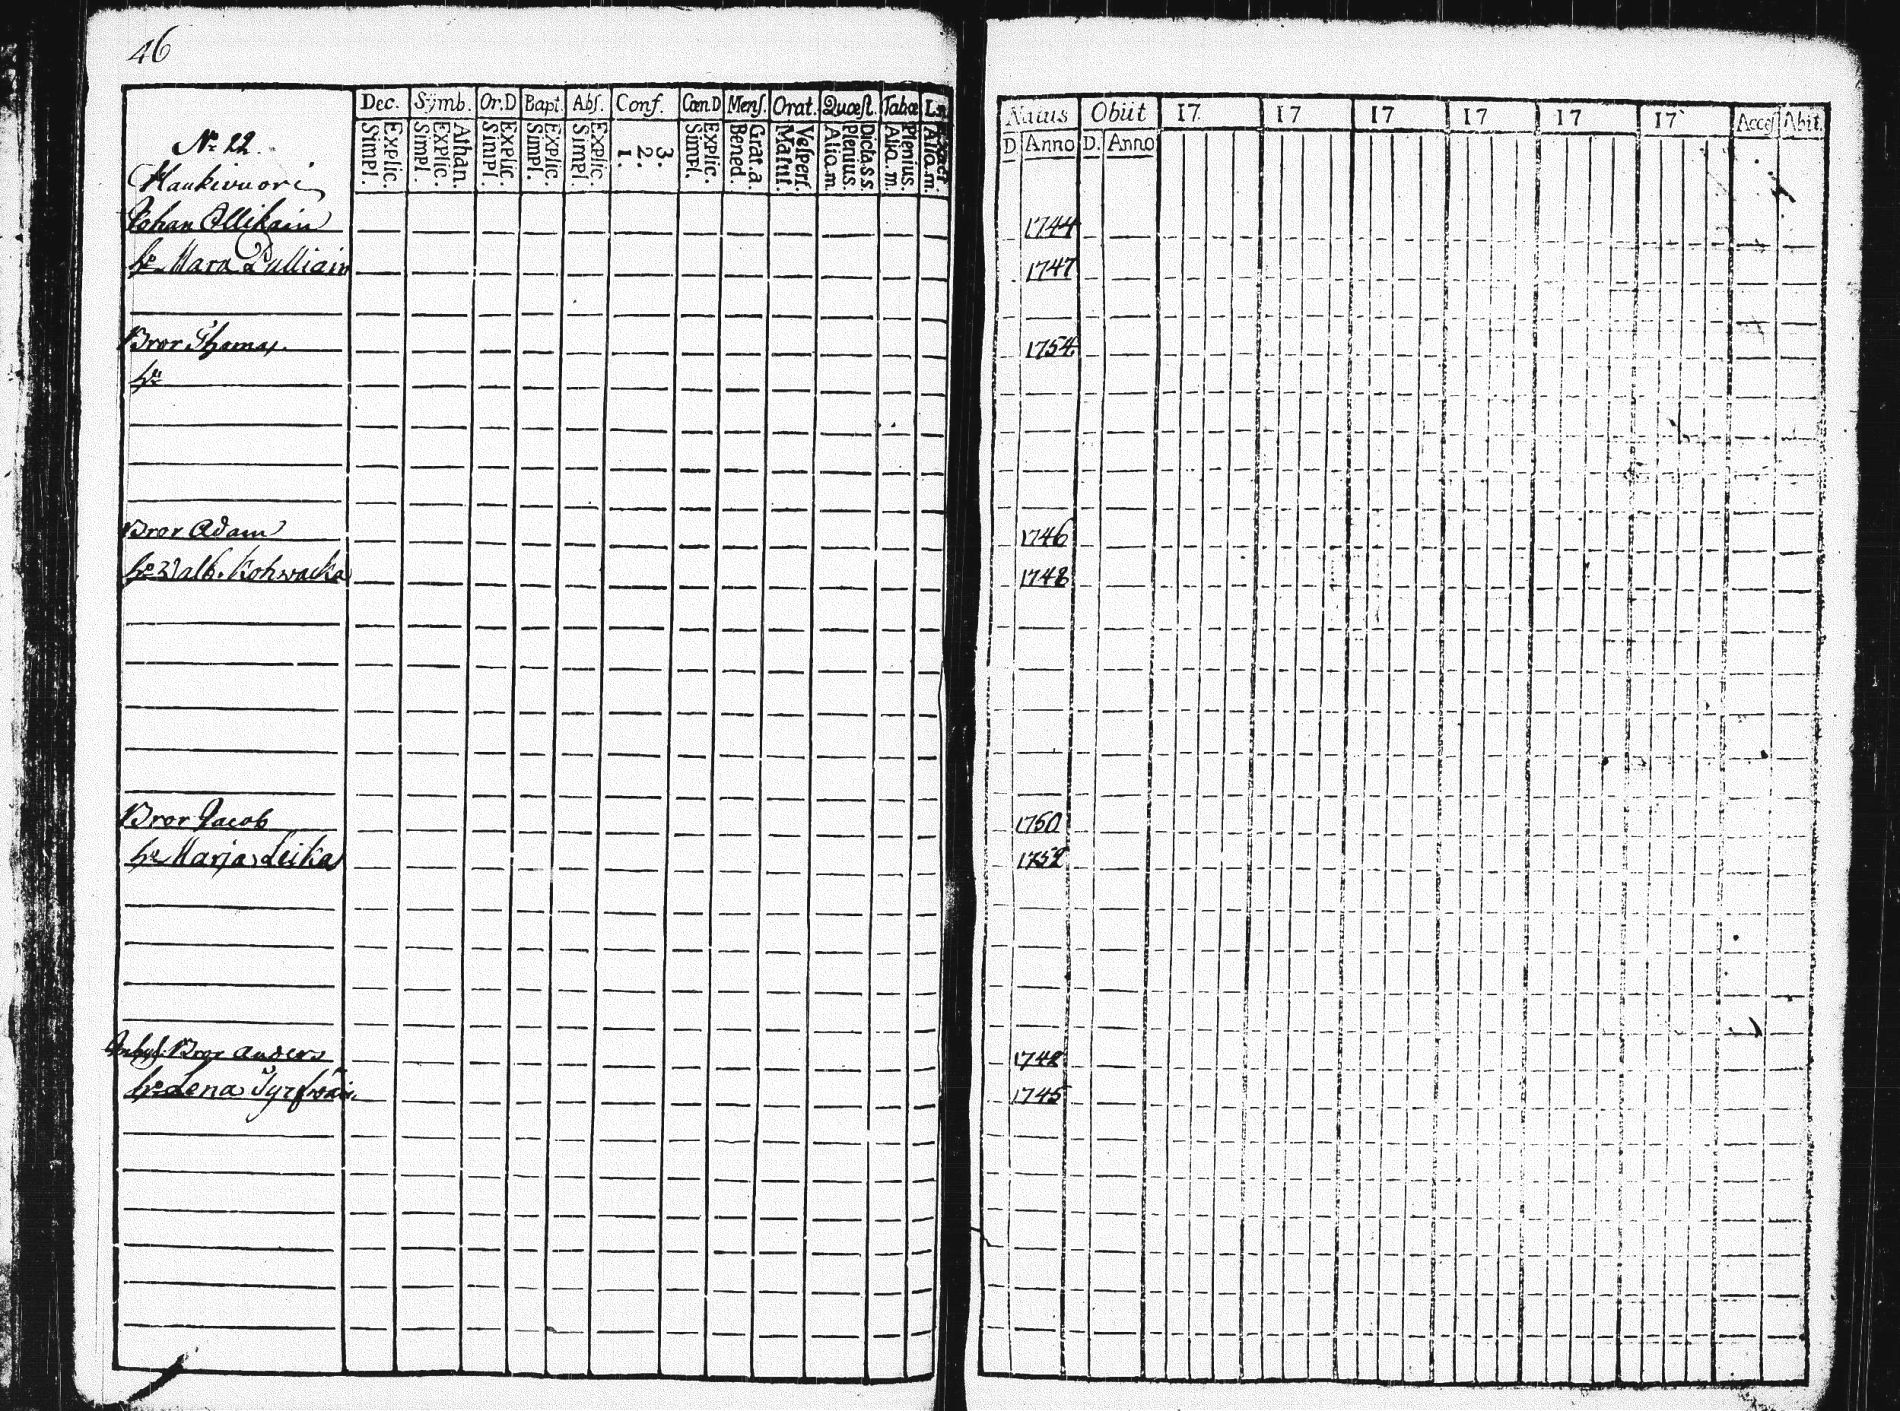 46
Dec. Symb. Or.D Bapt. Abs. Conf. Cœn D Mens. Orat. Quæst. Tabœ
Explic. Simpl. Athan. Explic. Simpl. Explic. Simpl. Explic. Simpl. Explic. Simpl. 3. 2. 1. Explic. Simpl. Grat.a. Bened. Vespert. Matut. Dicta.s.s. Plenius. Alio.m. Plenius. Alio.m. Exact. Alio.m.
Natus Obiit 17 17 17 17 17 17 Access Abit.
D Anno D. Anno
No 22.
Haukivuori
Johan Ollikain 1744
hu Mara Pulliain 1747
Bror Thomas. 1754.
hu
Bror Adam 1746
hu Valb. Kohwacka 1748
Bror Jacob 1750
hu Maria Leika 1752
Inhys: Bror Anders 1742
hu Lena Tyrfwäin. 1745